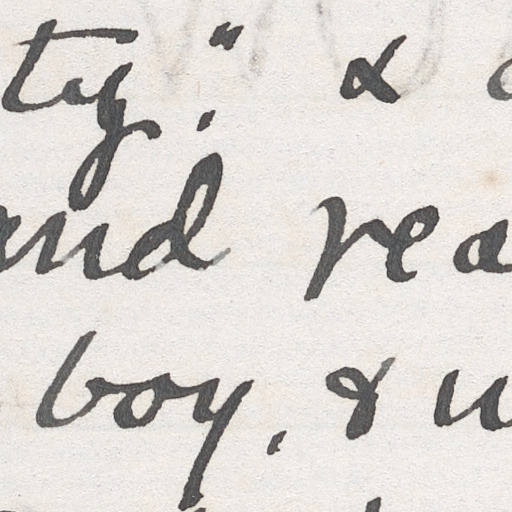 ty." &
and rea
boy. &